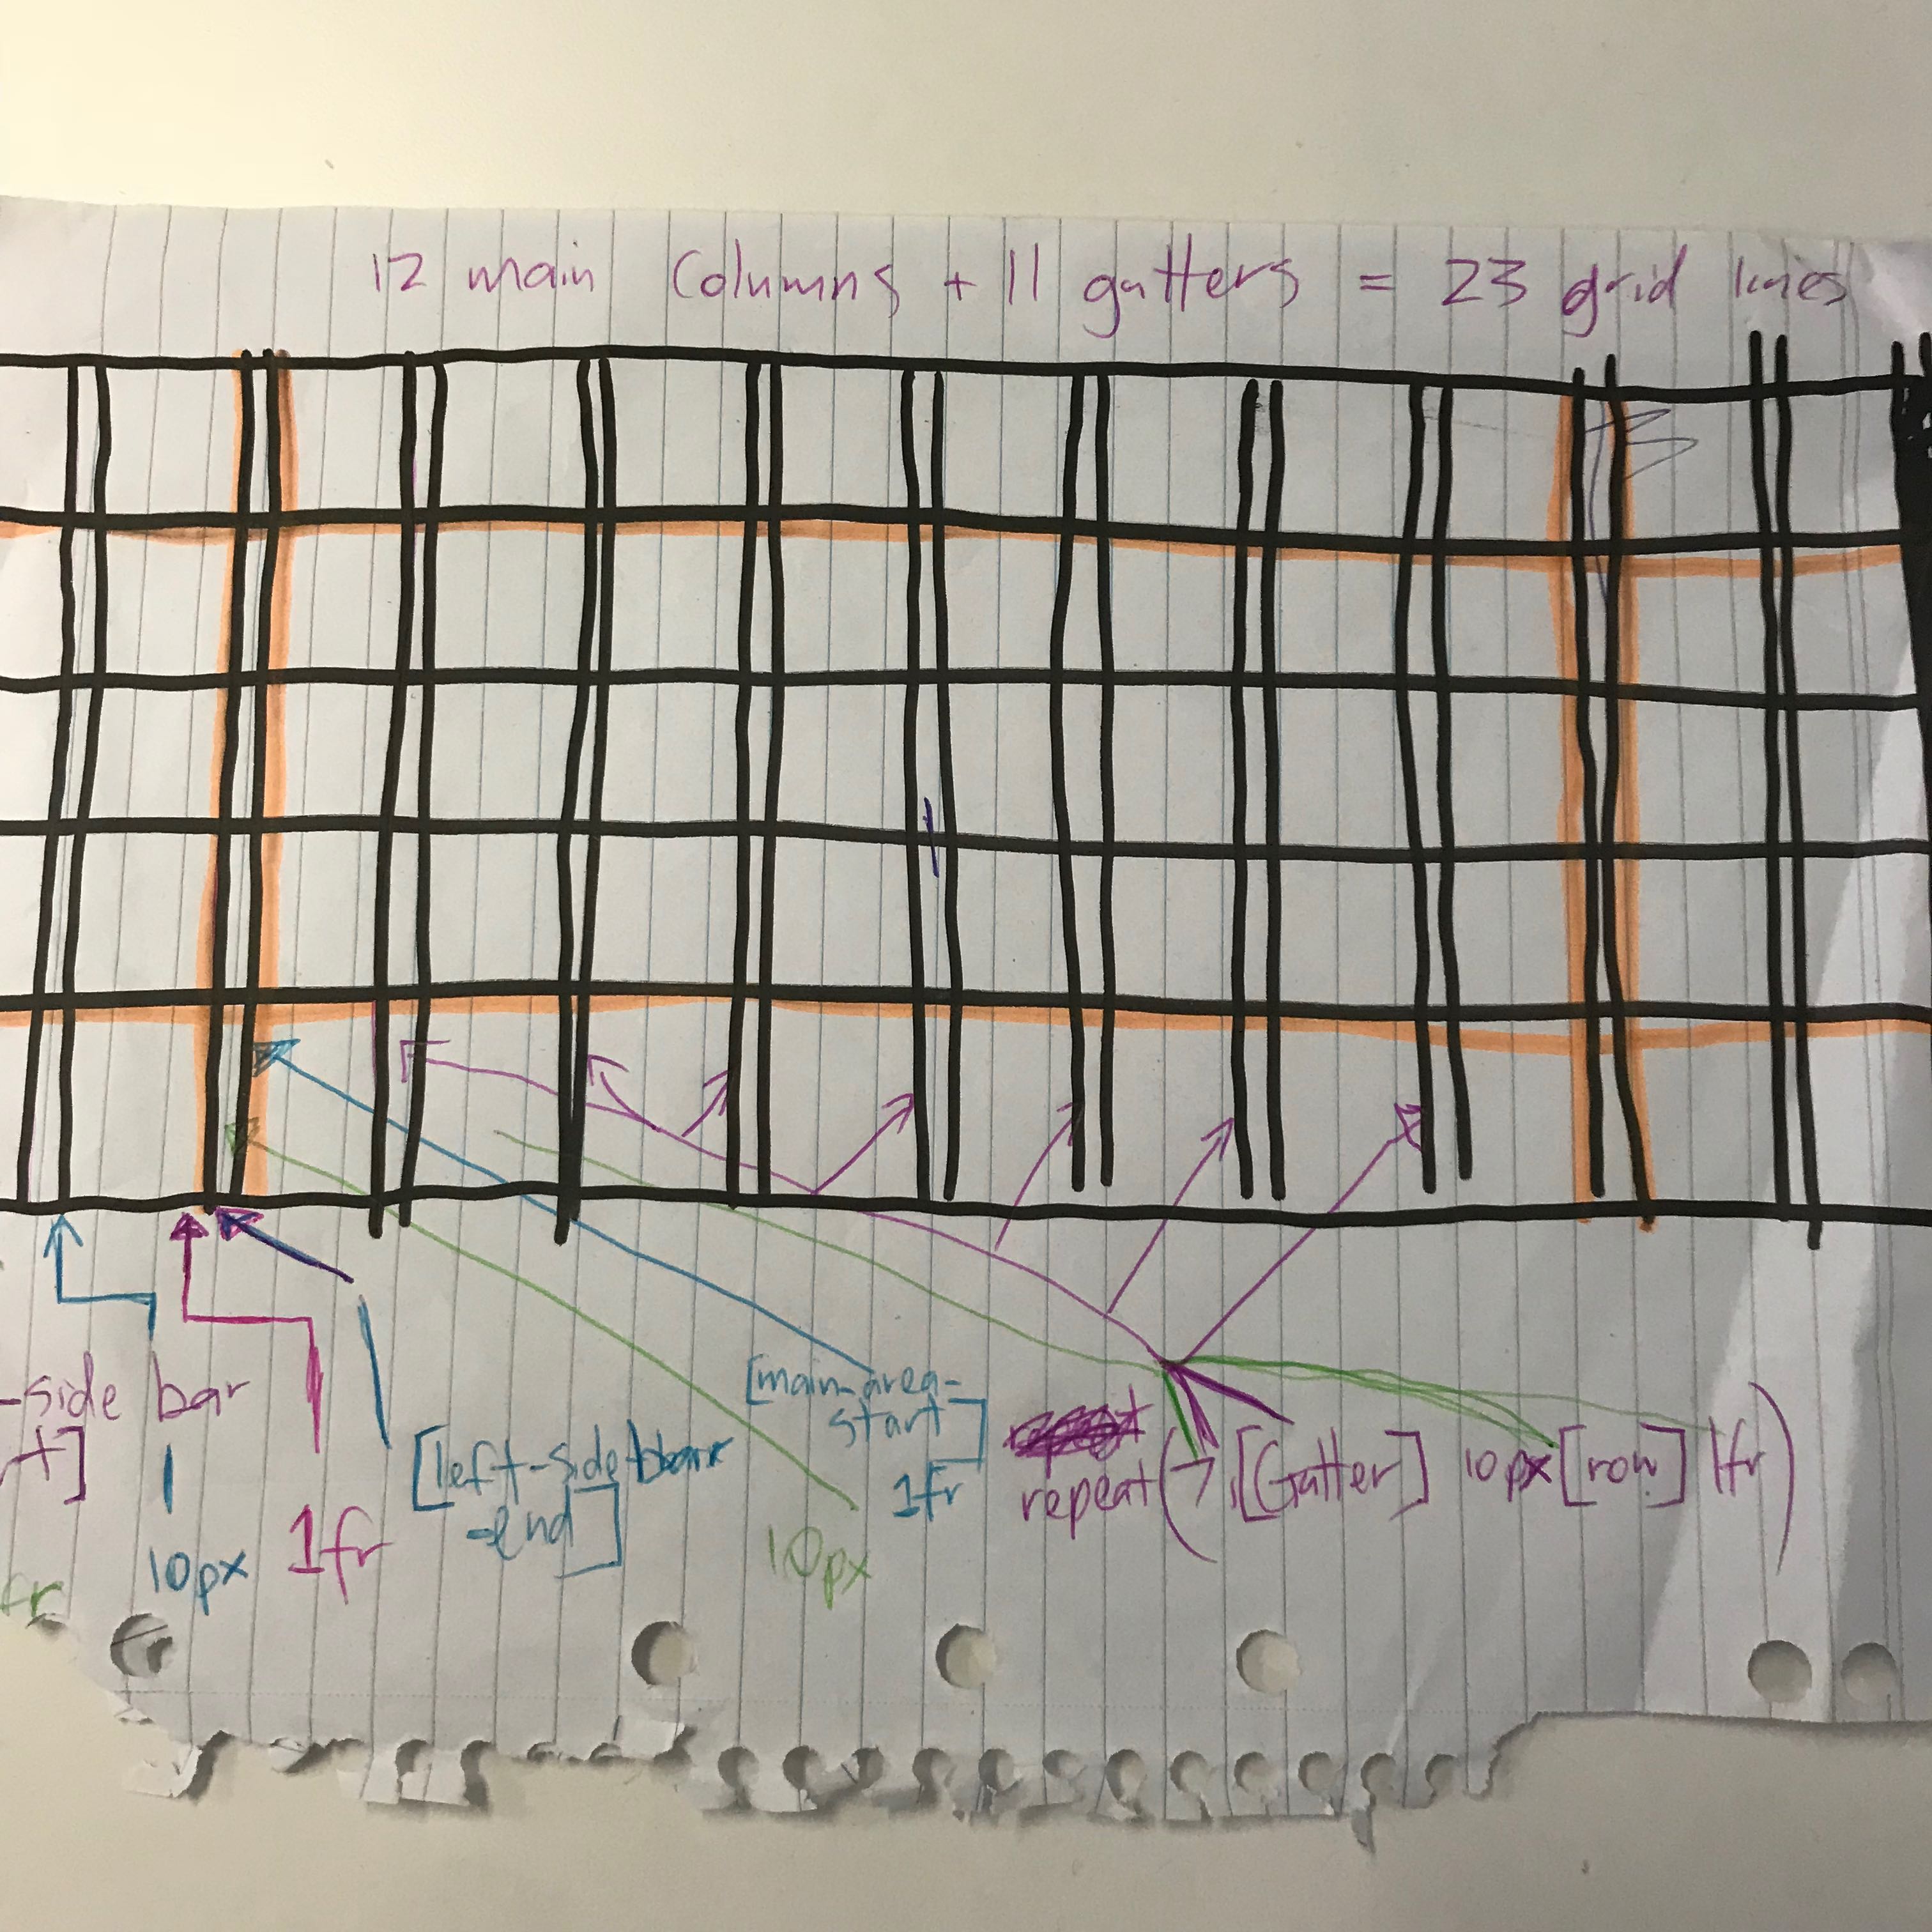 12 main Columns + 11 gutters = 23 grid lines
-side bar
t]
10px
1fr
[left-side bar
-end]
[main-area-
start]
10px
1fr
repeat(7,[Gutter] 10px [row] 1fr)
fr